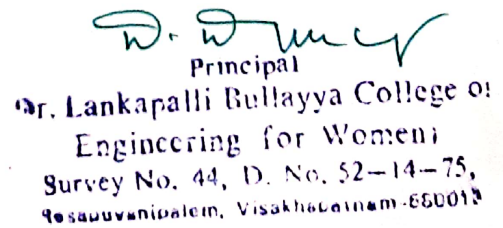 Principal
Dr. Lankapalli Bullayya College of
Engineering for Women
Survey No. 44, D. No. 52-14-75,
Resapuvanipalem, Visakhapatnam-530013